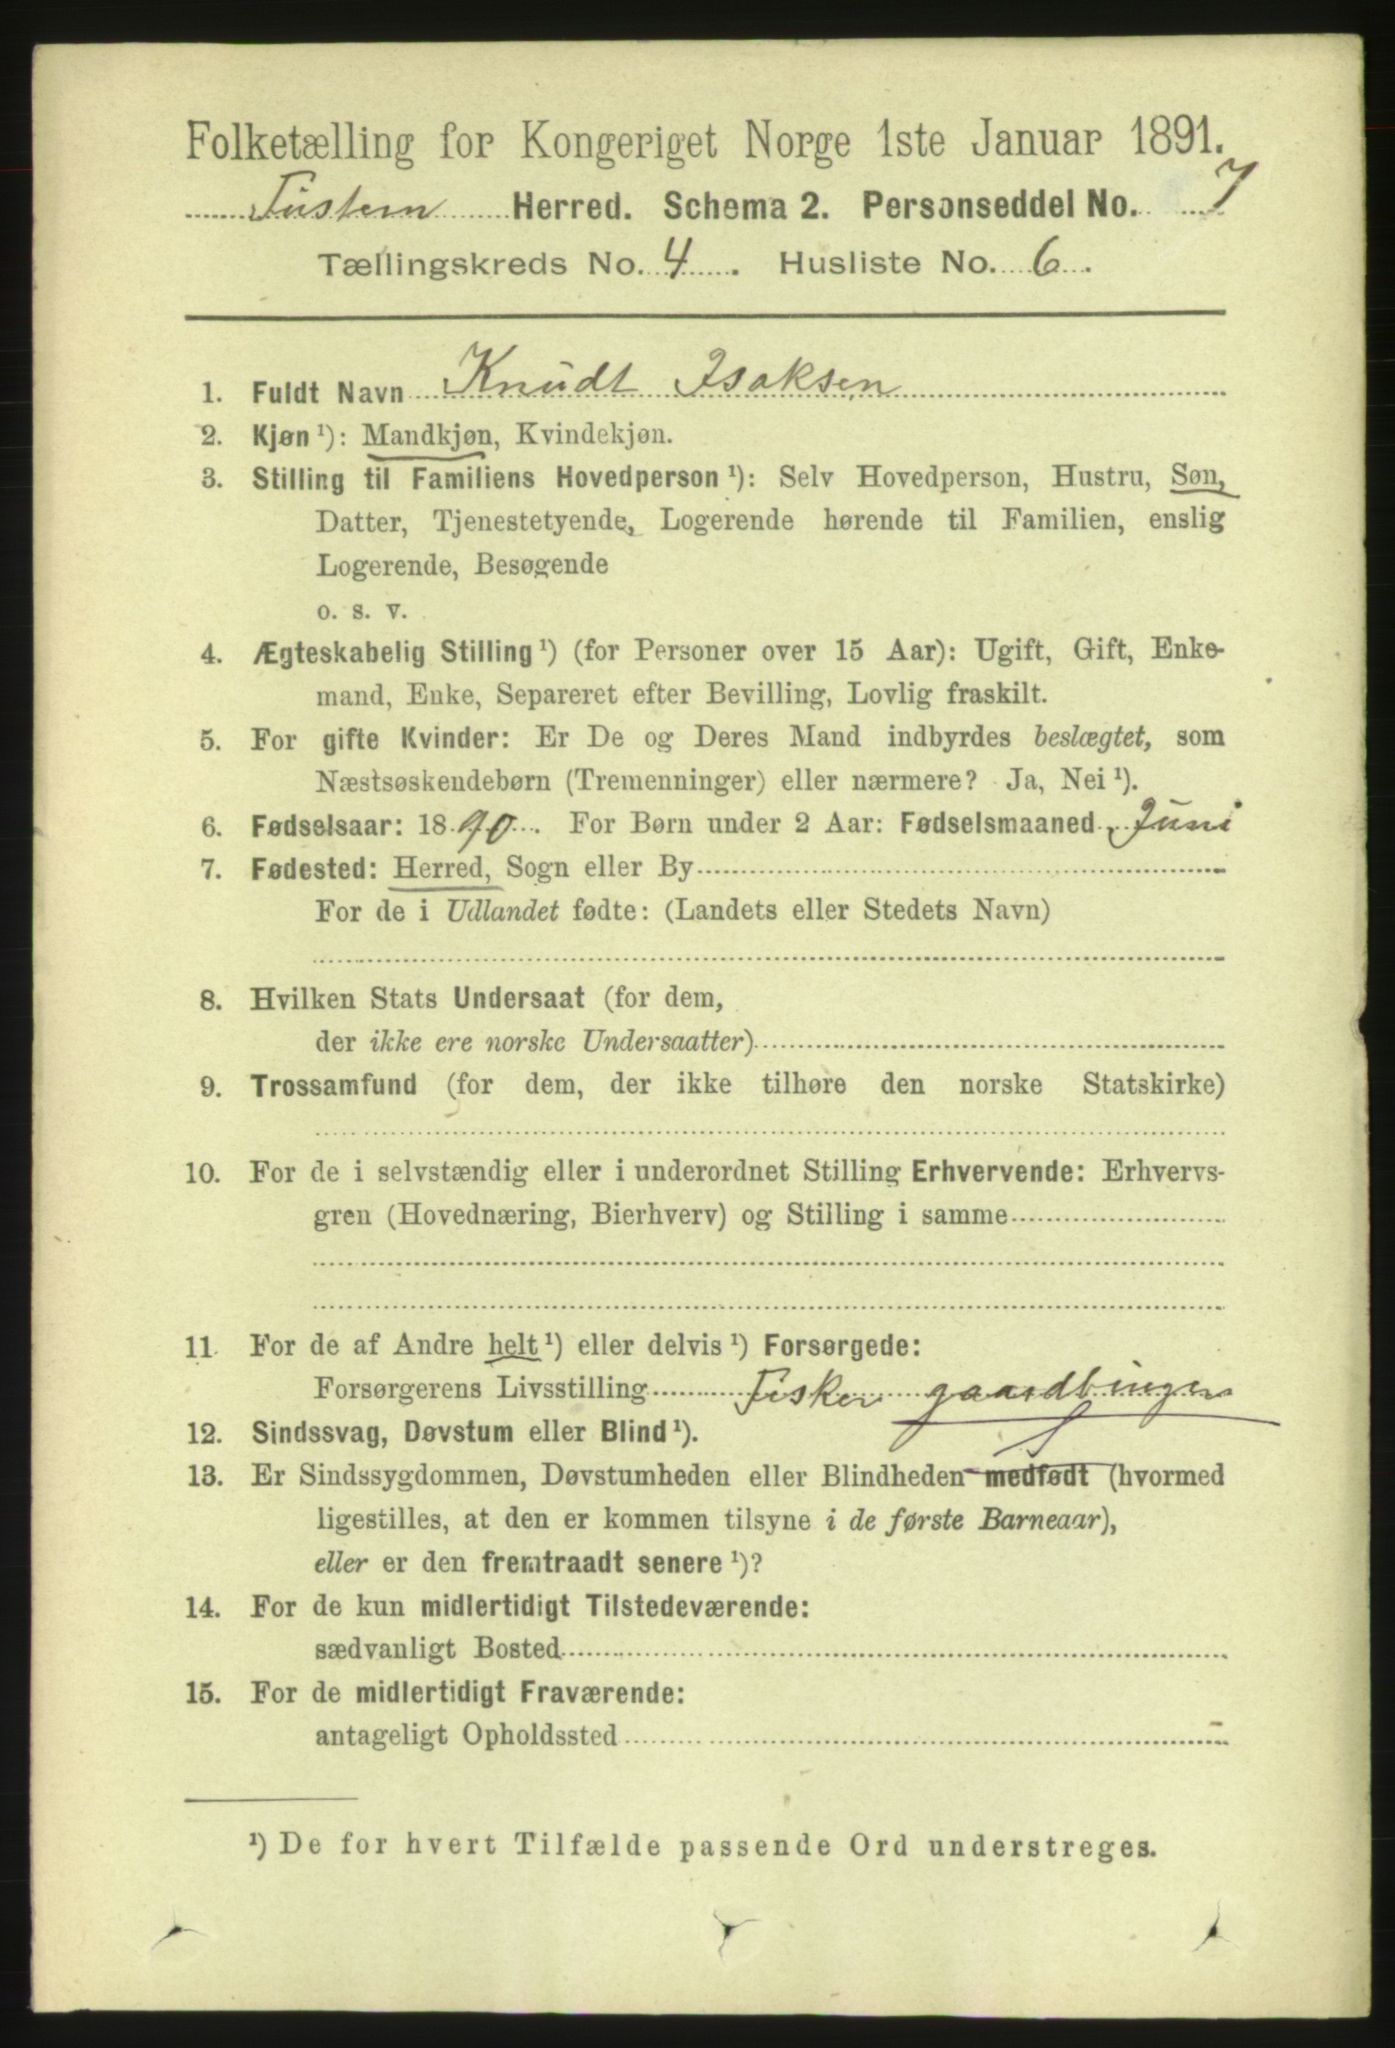 Folketælling for Kongeriget Norge 1ste Januar 1891.
Tustern Herred. Schema 2. Personseddel No. 7
Tællingskreds No. 4. Husliste No. 6.
1. Fuldt Navn Knudt Isaksen
2. Kjøn ¹): Mandkjøn, Kvindekjøn.
3. Stilling til Familiens Hovedperson ¹): Selv Hovedperson, Hustru, Søn,
Datter, Tjenestetyende, Logerende hørende til Familien, enslig
Logerende, Besøgende
o. s. v.
4. Ægteskabelig Stilling ¹) (for Personer over 15 Aar): Ugift, Gift, Enke-
mand, Enke, Separeret efter Bevilling, Lovlig fraskilt.
5. For gifte Kvinder: Er De og Deres Mand indbyrdes beslægtet, som
Næstsøskendebørn (Tremenninger) eller nærmere? Ja, Nei ¹).
6. Fødselsaar: 1890. For Børn under 2 Aar: Fødselsmaaned Juni
7. Fødested: Herred, Sogn eller By
For de i Udlandet fødte: (Landets eller Stedets Navn)
8. Hvilken Stats Undersaat (for dem,
der ikke ere norske Undersaatter)
9. Trossamfund (for dem, der ikke tilhøre den norske Statskirke)
10. For de i selvstændig eller i underordnet Stilling Erhvervende: Erhvervs-
gren (Hovednæring, Bierhverv) og Stilling i samme
11. For de af Andre helt ¹) eller delvis ¹) Forsørgede:
Forsørgerens Livsstilling Fisker gaardbruger
12. Sindssvag, Døvstum eller Blind ¹).
13. Er Sindssygdommen, Døvstumheden eller Blindheden medfødt (hvormed
ligestilles, at den er kommen tilsyne i de første Barneaar),
eller er den fremtraadt senere ¹)?
14. For de kun midlertidigt Tilstedeværende:
sædvanligt Bosted
15. For de midlertidigt Fraværende:
antageligt Opholdssted
¹) De for hvert Tilfælde passende Ord understreges.